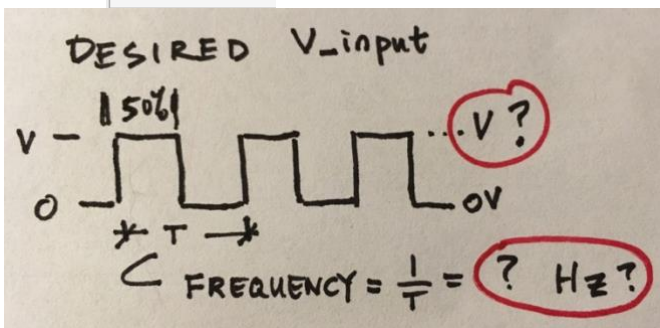 DESIRED V_input
50%
V
... V ?
0
0V
T
FREQUENCY = 1/T = ? Hz ?